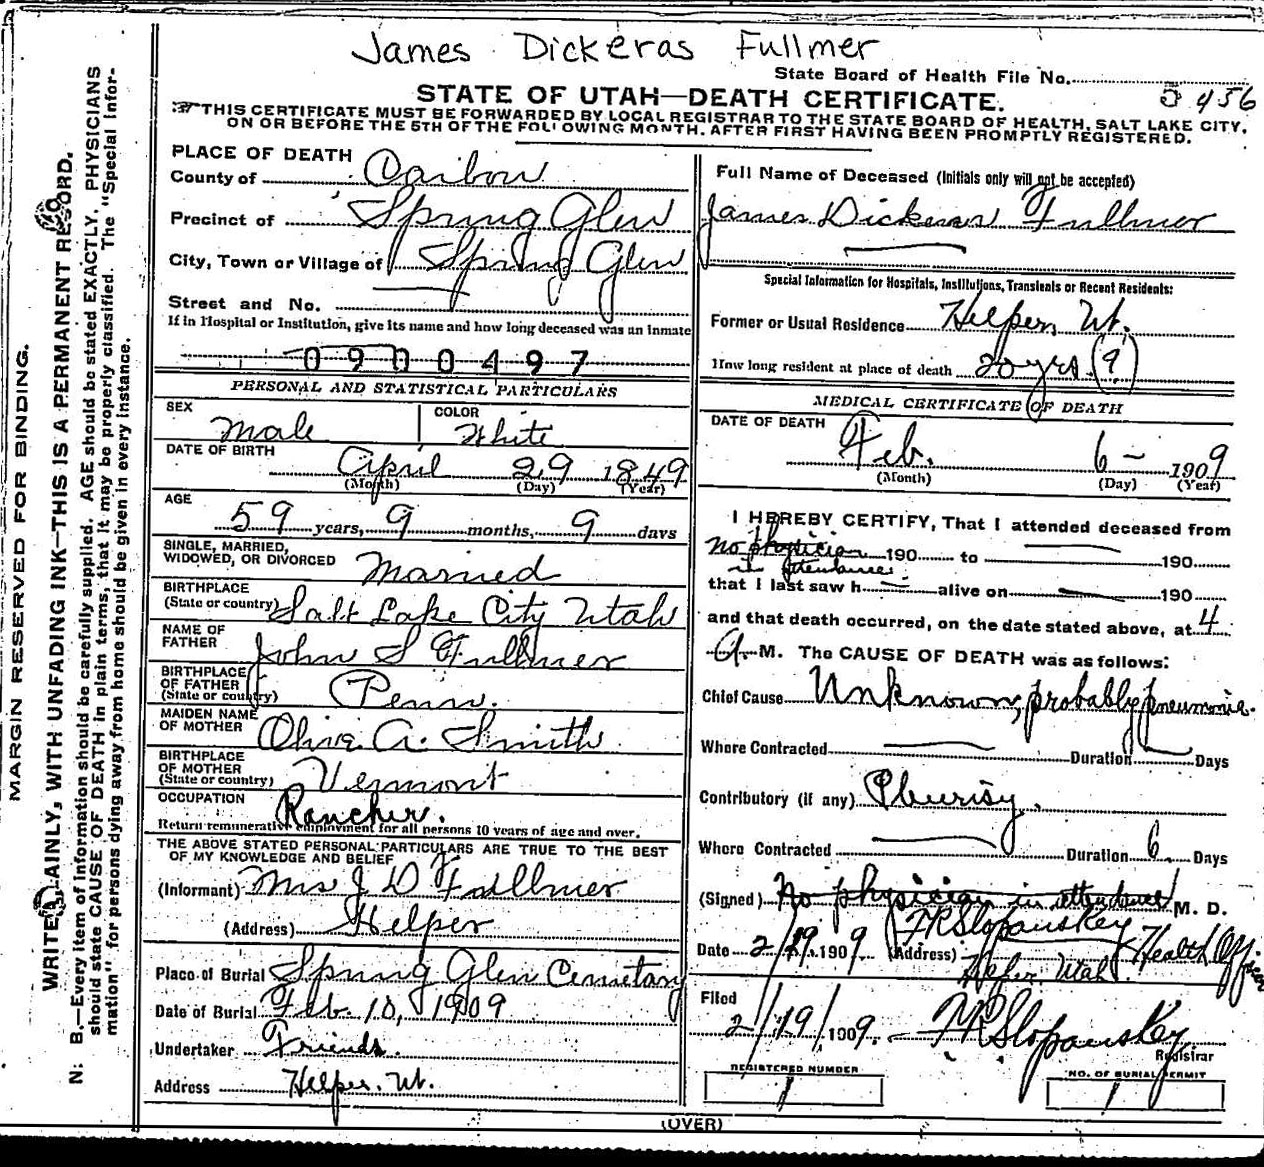 James Dickeras Fullmer
State Board of Health File No. 456
STATE OF UTAH—DEATH CERTIFICATE.
THIS CERTIFICATE MUST BE FORWARDED BY LOCAL REGISTRAR TO THE STATE BOARD OF HEALTH, SALT LAKE CITY,
ON OR BEFORE THE 5TH OF THE FOLLOWING MONTH, AFTER FIRST HAVING BEEN PROMPTLY REGISTERED.
MARGIN RESERVED FOR BINDING.
WRITE PLAINLY, WITH UNFADING INK—THIS IS A PERMANENT RECORD.
N. B.—Every item of information should be carefully supplied. AGE should be stated EXACTLY. PHYSICIANS
should state CAUSE OF DEATH in plain terms, that it may be properly classified. The "Special Infor-
mation" for persons dying away from home should be given in every instance.
PLACE OF DEATH
County of Caibon
Precinct of Spring Glen
City, Town or Village of Spring Glen
Street and No.
If in Hospital or Institution, give its name and how long deceased was an inmate
0900497
PERSONAL AND STATISTICAL PARTICULARS
SEX Male COLOR White
DATE OF BIRTH April 29 1849
(Month) (Day) (Year)
AGE 59 years, 9 months, 9 days
SINGLE, MARRIED,
WIDOWED, OR DIVORCED Married
BIRTHPLACE
(State or country) Salt Lake City Utah
NAME OF
FATHER John S Fullmer
BIRTHPLACE
OF FATHER
(State or country) Penn.
MAIDEN NAME
OF MOTHER Olive A. Smith
BIRTHPLACE
OF MOTHER
(State or country) Vermont
OCCUPATION Rancher.
Return remunerative employment for all persons 10 years of age and over.
THE ABOVE STATED PERSONAL PARTICULARS ARE TRUE TO THE BEST
OF MY KNOWLEDGE AND BELIEF
(Informant) Mrs J D Fullmer
(Address) Helper
Place of Burial Spring Glen Cemetary
Date of Burial Feb. 10, 1909
Undertaker Friends.
Address Helper, Ut.
Full Name of Deceased (Initials only will not be accepted)
James Dickeras Fullmer
Special Information for Hospitals, Institutions, Transients or Recent Residents:
Former or Usual Residence Helper, Ut.
How long resident at place of death 20 yrs. (9)
MEDICAL CERTIFICATE OF DEATH
DATE OF DEATH Feb. 6 — 1909
(Month) (Day) (Year)
I HEREBY CERTIFY, That I attended deceased from
no physician 190 to 190
in attendance
that I last saw h alive on 190
and that death occurred, on the date stated above, at 4
A. M. The CAUSE OF DEATH was as follows:
Chief Cause Unknown, probably pneumonia.
Where Contracted Duration Days
Contributory (if any) Pleurisy.
Where Contracted Duration 6 Days
(Signed) No physician in attendance M. D.
FR Slopanskey Health Officer
Date 2/19 1909 (Address) Helper, Utah.
Filed
2/19/1909. FR Slopanskey
Registrar
REGISTERED NUMBER NO. OF BURIAL PERMIT
1 1
(OVER)